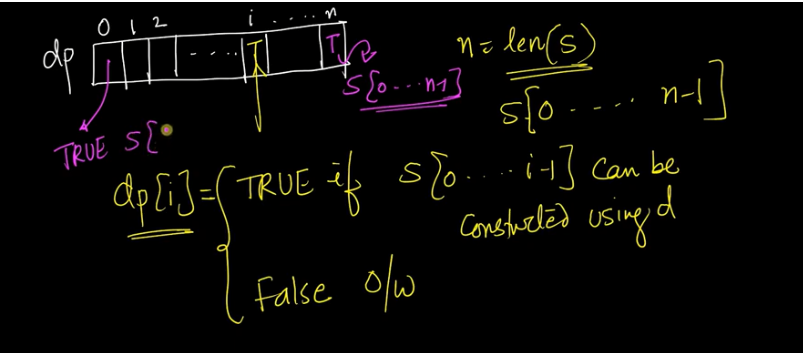 0 1 2 i ..... n
dp ..... T T
n = len(S)
S[0...n-1]
S[0 ..... n-1]
TRUE S[
dp[i] = { TRUE if S[0.....i-1] can be
constructed using d
False o/w